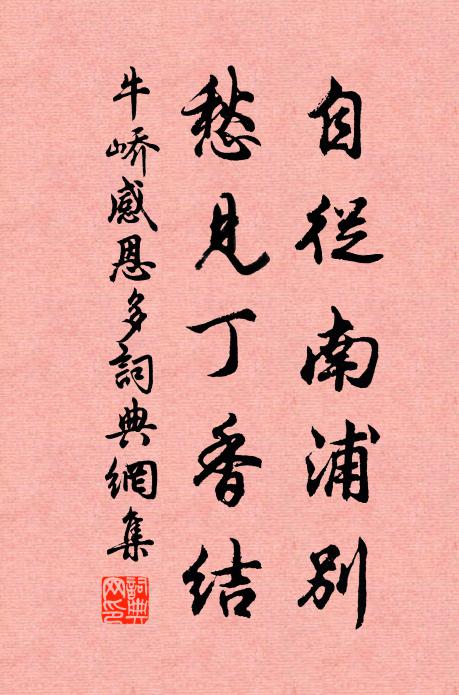 自從南浦別
愁見丁香結
牛嶠感恩多詞典網集
詞典網印